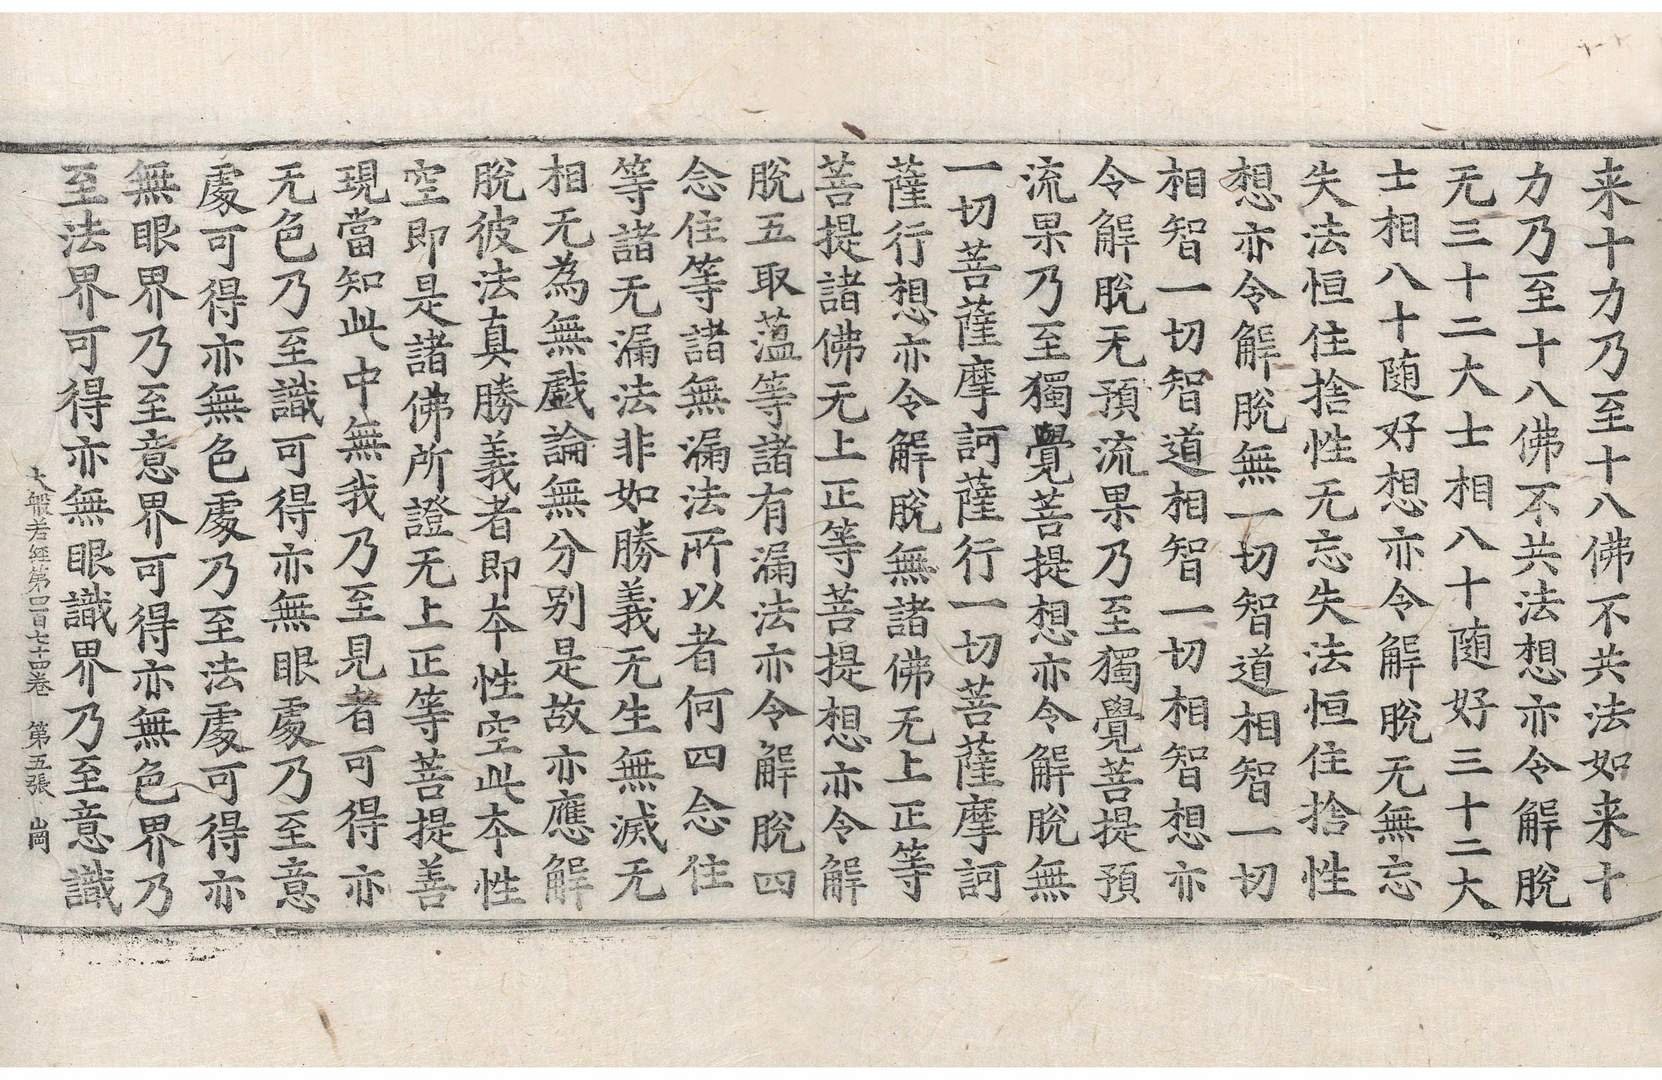 来十力乃至十八佛不共法如来十
力乃至十八佛不共法想亦令解脫
无三十二大士相八十随好三十二大
士相八十随好想亦令解脫无無忘
失法恒住捨性无忘失法恒住捨性
想亦令解脫無一切智道相智一切
相智一切智道相智一切相智想亦
令解脫无預流果乃至獨覺菩提預
流果乃至獨覺菩提想亦令解脫無
一切菩薩摩訶薩行一切菩薩摩訶
薩行想亦令解脫無諸佛无上正等
菩提諸佛无上正等菩提想亦令解
脫五取薀等諸有漏法亦令解脫四
念住等諸無漏法所以者何四念住
等諸无漏法非如勝義无生無滅无
相无為無戲論無分别是故亦應解
脫彼法真勝義者即夲性空此夲性
空即是諸佛所證无上正等菩提善
現當知此中無我乃至見者可得亦
无色乃至識可得亦無眼處乃至意
處可得亦無色處乃至法處可得亦
無眼界乃至意界可得亦無色界乃
至法界可得亦無眼識界乃至意識
大般若經第四百七十四卷 第五張 崗